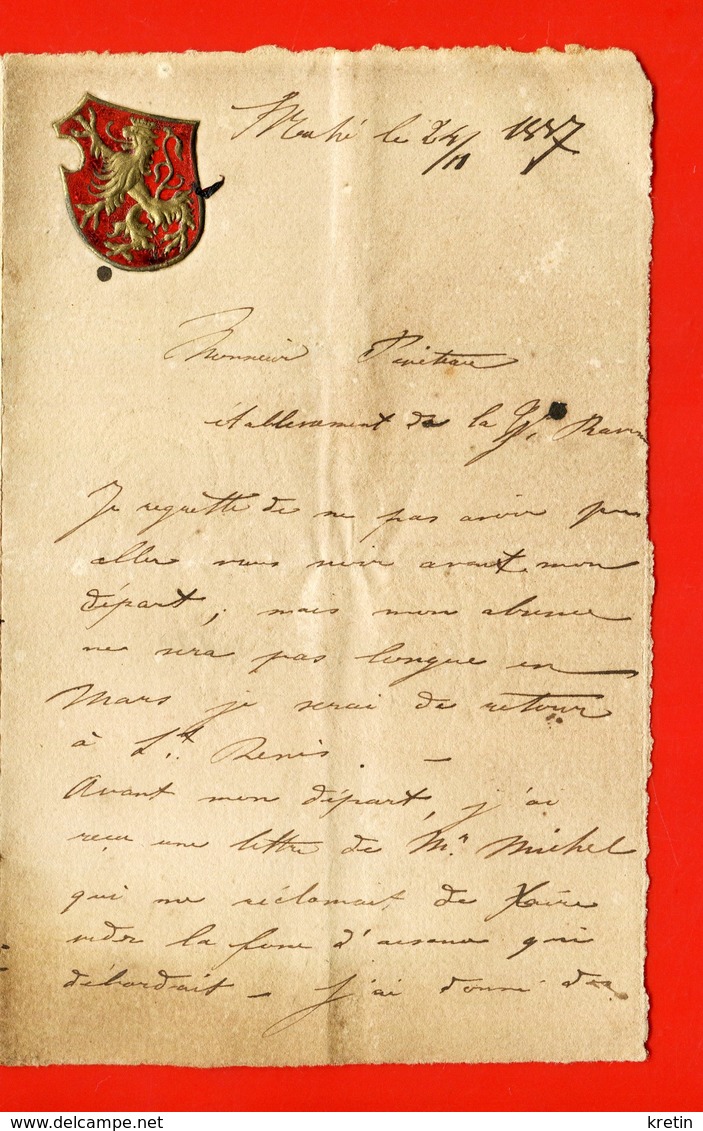 Mahé le 24/11 1887
Monsieur
établissement de la
Je regrette de ne pas avoir pu
aller vous voir avant mon
départ; mais mon absence
ne sera pas longue en
Mars je serai de retour
à St. Denis. —
Avant mon départ, j'ai
reçu une lettre de Mr. Michel
qui me réclamait de faire
vider la fosse d'aisance qui
débordait — j'ai donné des
delcampe.net
kretin